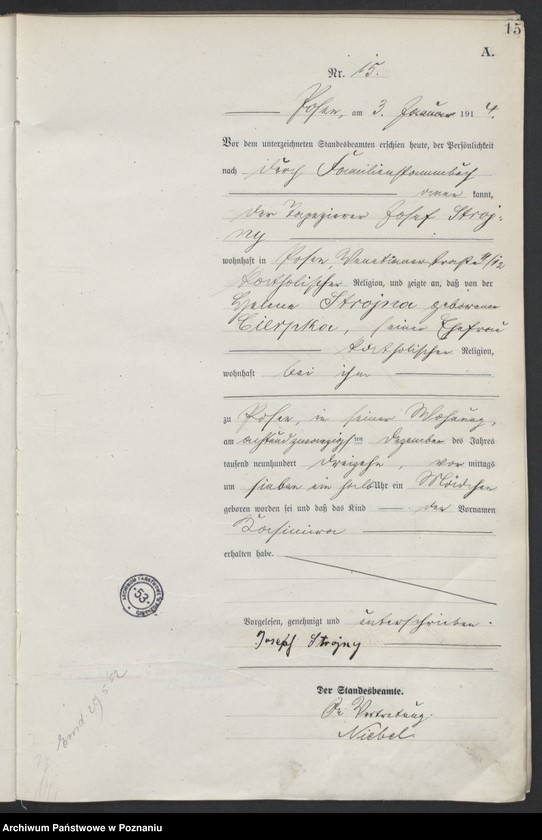 15
A.
Nr. 15.
Posen, am 3. Januar 1914.
Vor dem unterzeichneten Standesbeamten erschien heute, der Persönlichkeit
nach durch Familienstammbuch
aner kannt,
der Tapezierer Josef Stroj-
ny
wohnhaft in Posen,
katholischer Religion, und zeigte an, daß von der
Helene Strojna geborenen
Cierpka, seiner Ehefrau
katholischer Religion,
wohnhaft bei ihm
zu Posen, in seiner Wohnung,
am achtundzwanzigsten Dezember des Jahres
tausend neunhundert dreizehn, vor mittags
um sieben ein halb Uhr ein Mädchen
geboren worden sei und daß das Kind den Vornamen
Kasimira
erhalten habe.
53
Vorgelesen, genehmigt und unterschrieben.
Joseph Strojny
Der Standesbeamte.
In Vertretung.
Niebel
Archiwum Państwowe w Poznaniu